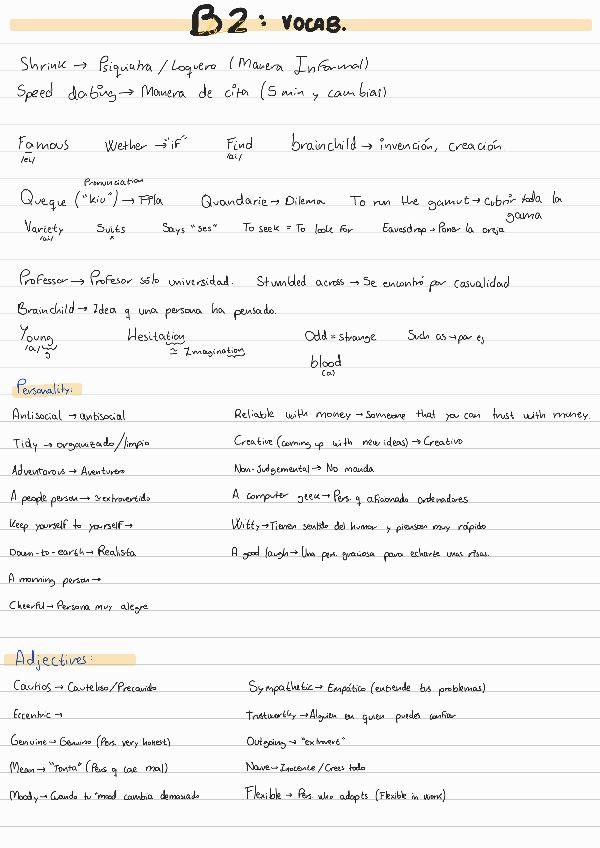 B2: VOCAB.
Shrink → Psiquiatra / Loquero (Manera Informal)
Speed dating → Manera de cita (5 min y cambias)
Famous Wether → "if" Find brainchild → invención, creación
/ei/ /ai/
Pronunciation
Queque ("kiu") → Fila Quandarie → Dilema To run the gamut → cubrir toda la
gama
Variety Suits Says "ses" To seek = To look for Eavesdrop → Poner la oreja
/ai/
Professor → Profesor sólo universidad. Stumbled across → Se encontró por casualidad
Brainchild → Idea q una persona ha pensado.
Young Hesitation Odd = strange Such as → por ej
/a/ ≃ Imagination
blood
(a)
Personality:
Antisocial → antisocial Reliable with money → Someone that you can trust with money.
Tidy → organizado/limpio Creative (coming up with new ideas) → Creativo
Adventorous → Aventurero Non-Judgemental → No manda
A people person → extrovertido A computer geek → Pers. q aficionado ordenadores
Keep yourself to yourself → Witty → Tienen sentido del humor y piensan muy rápido
Down-to-earth → Realista A good laugh → Una pers. graciosa para echarte unas risas.
A morning person →
Cheerful → Persona muy alegre
Adjectives:
Cautios → Cauteloso/Precavido Sympathetic → Empático (entiende tus problemas)
Eccentric → Trustworthy → Alguien en quien puedes confiar
Genuine → Genuino (Pers. very honest) Outgoing → "extrovert"
Mean → "Tonta" (Pers q cae mal) Naive → Inocente / Crees todo
Moody → Cuando tu "mood cambia demasiado Flexible → Pers. who adapts (Flexible in work)